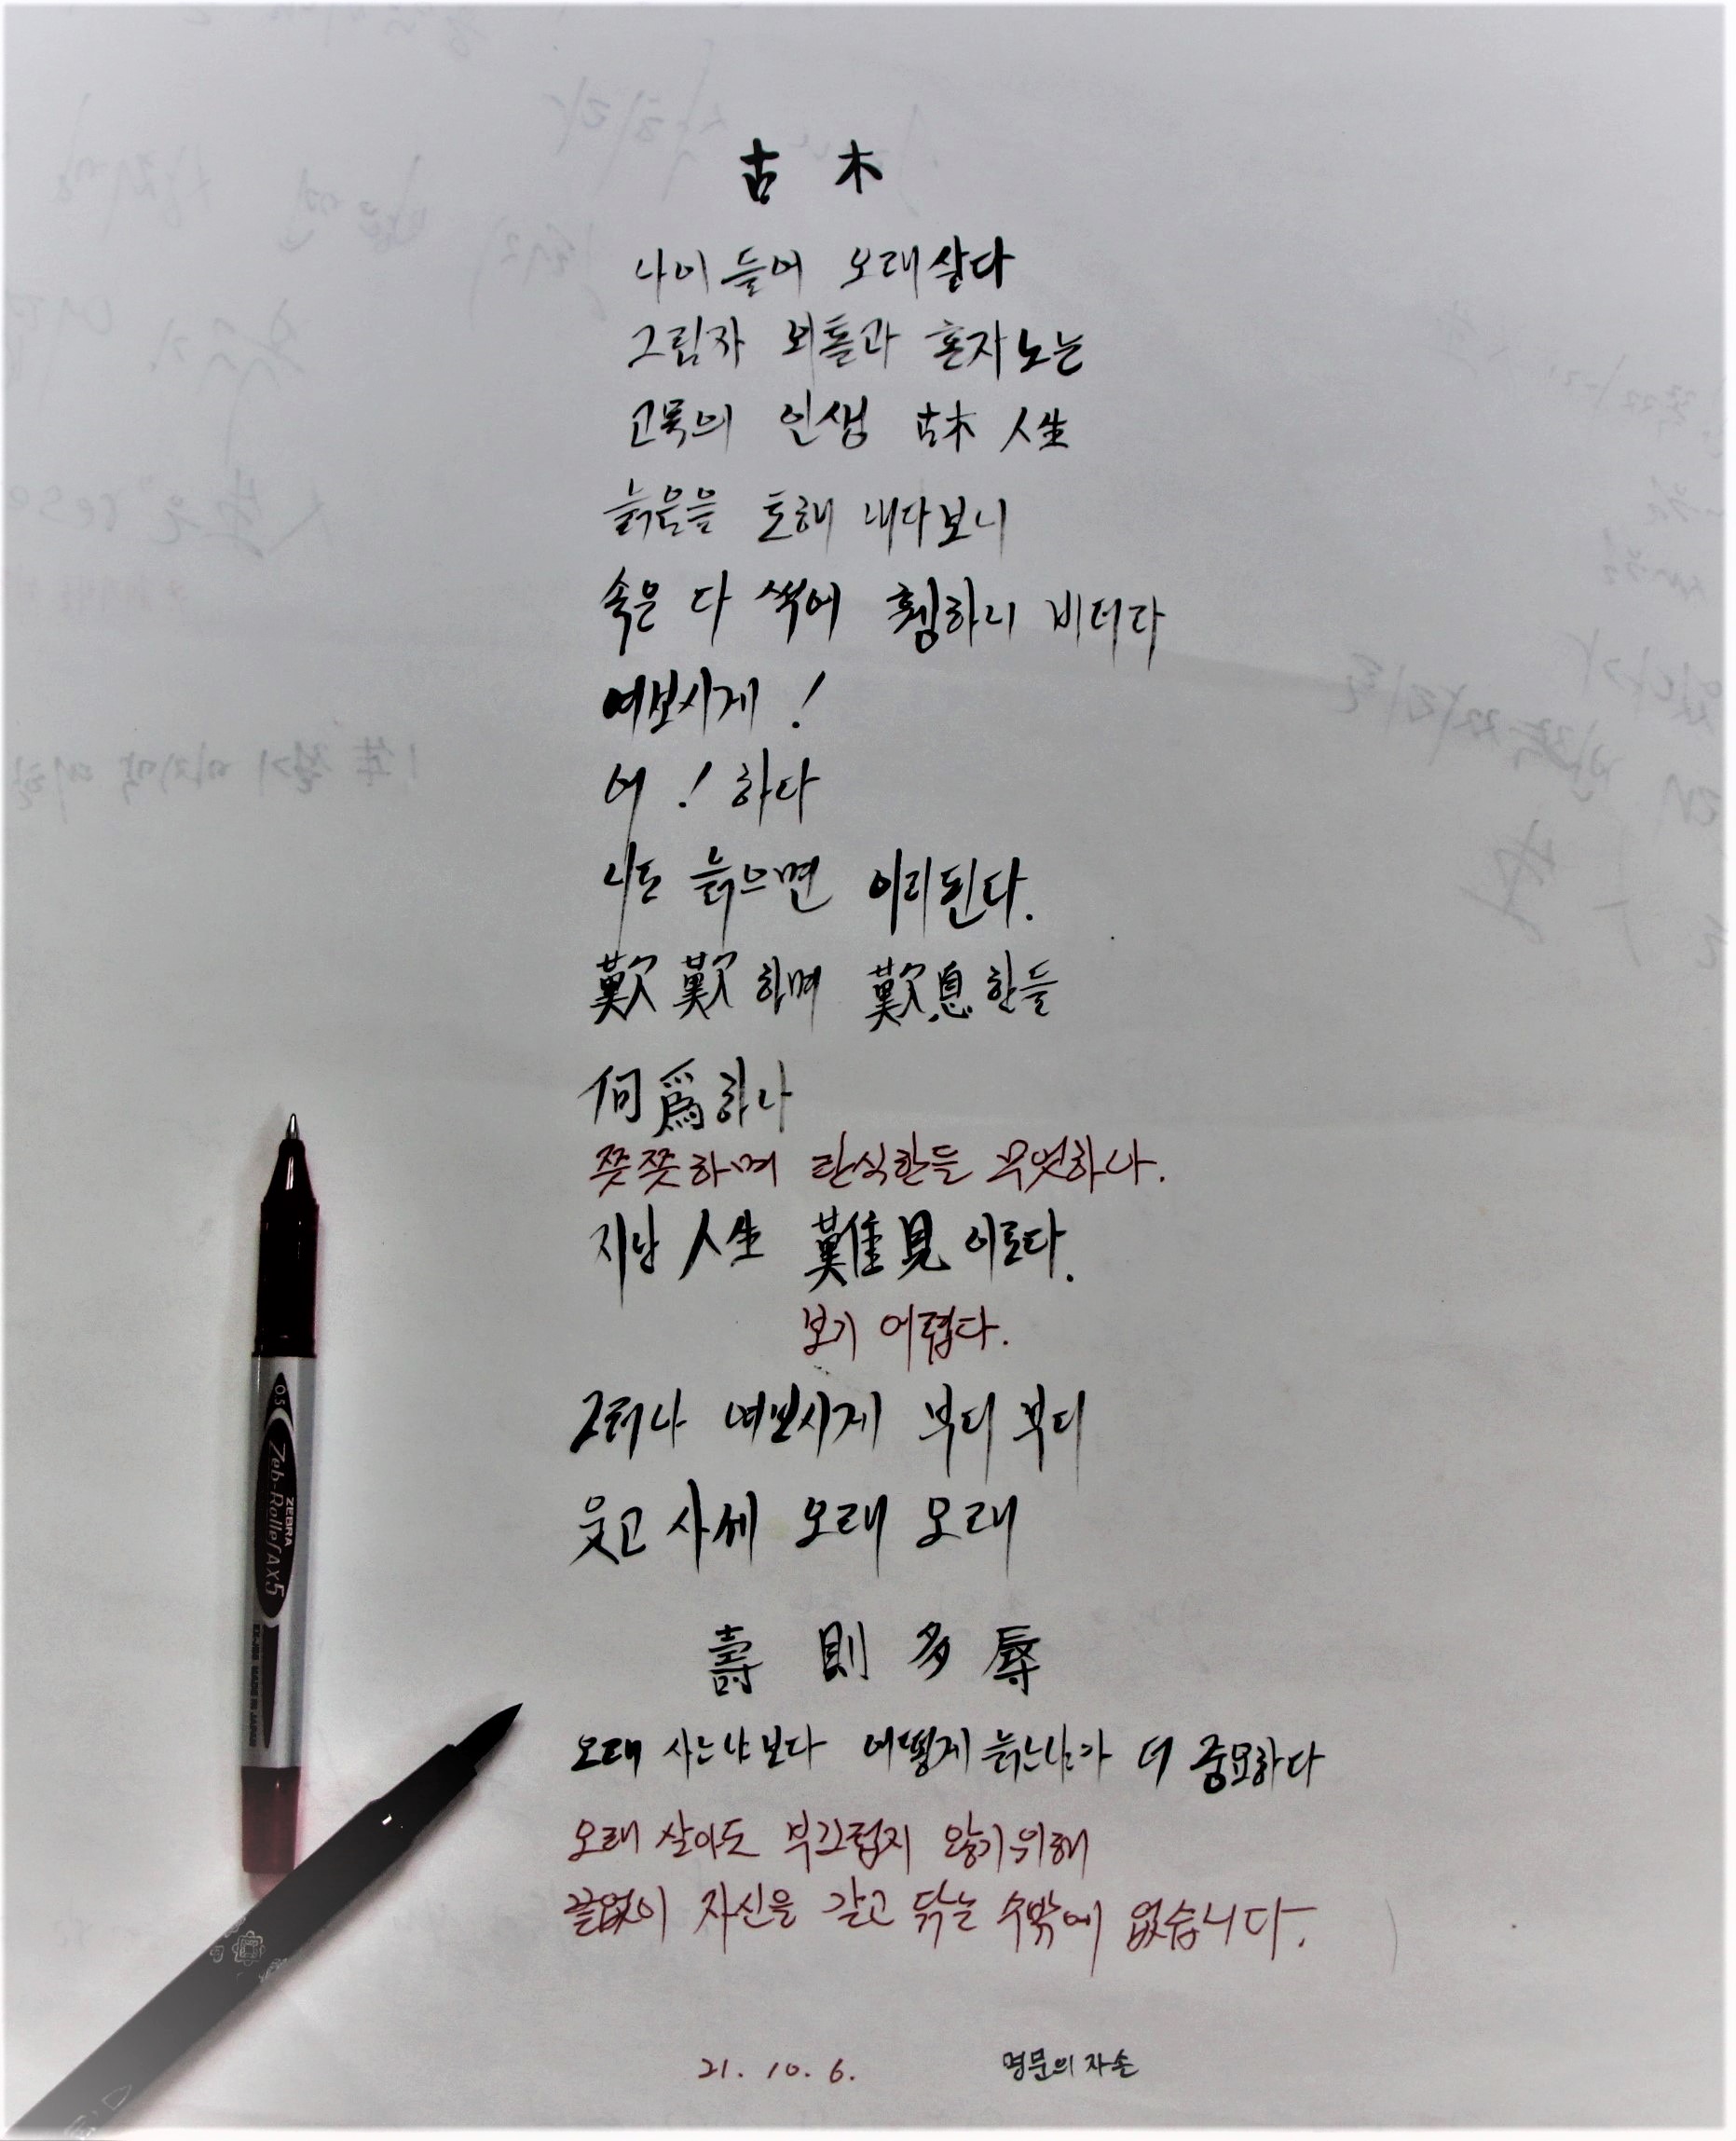 古木
나이 들어 오래 살다
그림자 외톨과 혼자 노는
고목의 인생 古木 人生
늙음을 토해 내다보니
속은 다 썩어 휑하니 비더라
여보시게 !
어 ! 하다
니도 늙으면 이리된다.
歎歎하며 歎息한들
何爲하나
쯧쯧하며 탄식한들 무엇하나.
지난 人生 難見이로다.
보기 어렵다.
그러나 여보시게 부디 부디
웃고 사세 오래 오래
壽則多辱
오래 사느냐보다 어떻게 늙느냐가 더 중요하다
오래 살아도 부끄럽지 않기 위해
끝없이 자신을 갈고 닦는 수밖에 없습니다.
21. 10. 6. 명문의 자손
0.5
ZEBRA
Zeb-Roller Ax5
MADE IN JAPAN